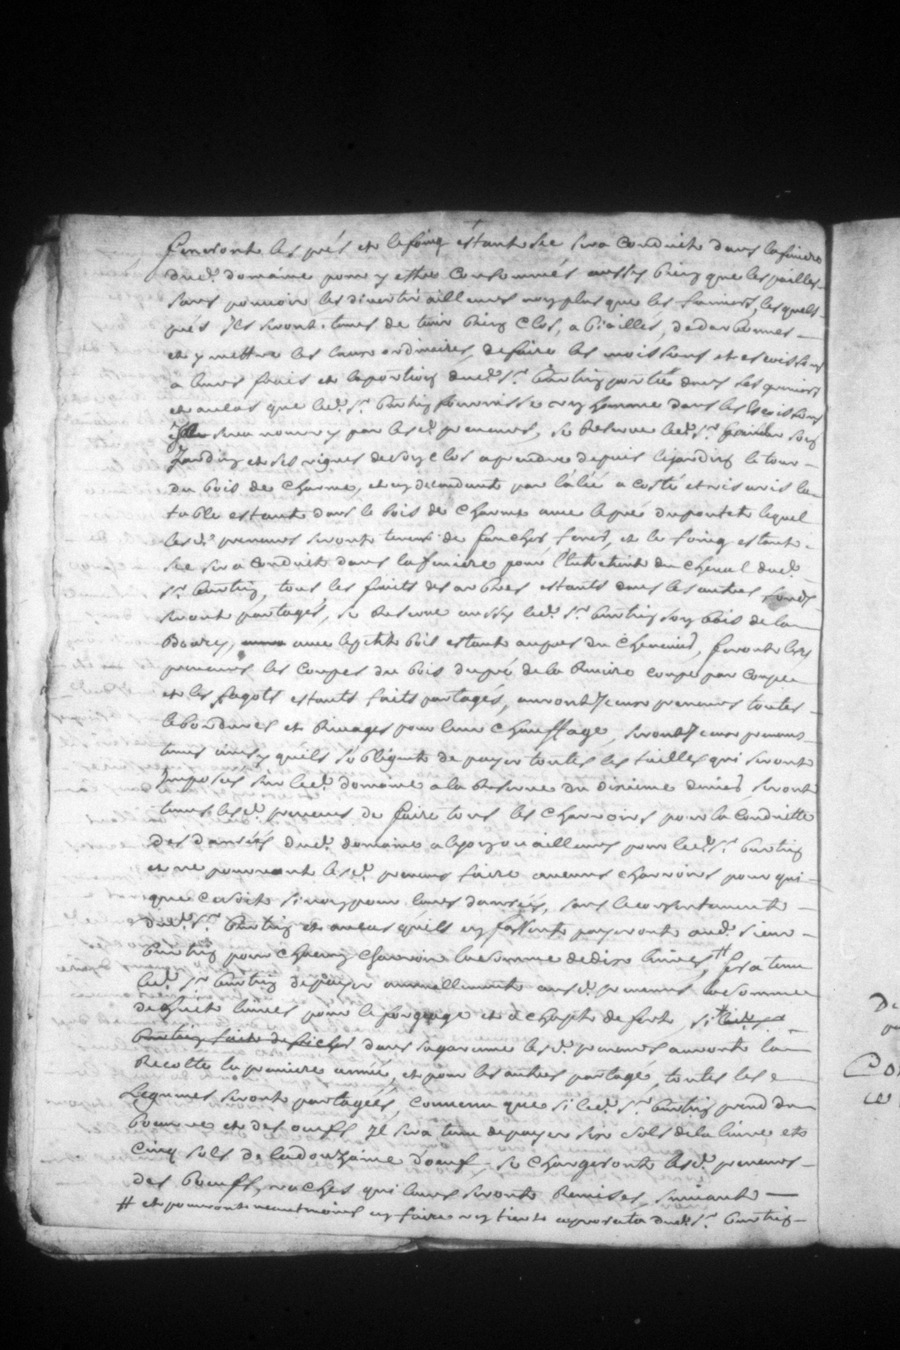 feneront les prés et le foing estant sec sera conduit dans la finiere
dud. domaine pour y estre consommés aussy bien que les pailles
sans pouvoir les divertir ailleurs non plus que les fumiers, lesquels
prés ils seront tenus de tenir bien clos,
et y mettre les eaux ordinaires, de faire les moissons et
a leurs frais et la portion dud. sr. portée dans les greniers
et au cas que led. sr. fournisse un homme dans les
sera nourry par lesd. preneurs, se Reserve led. sr. son
Jardin et ses vignes de son clos a prendre depuis le jardin le tour
du bois de charme, et en descendant par l'alée a costé et vis avis la
table estant dans le bois de charme avec le pré du lequel
lesd. preneurs seront tenus de faucher fener, et le foing estant
sec sera conduit dans la finiere pour l'entretient du cheval dud.
sr. tous les fruits des arbres estants dans les autres fonds
seront partagés, se Reserve aussy led. sr. son bois de la
avec le petit bois estant aupres du chemin, feront les
preneurs les coupes du bois du pré de la Riviere coupe par coupe
et les fagots estants faits partagés, auront yceux preneurs toutes
le bordures et Rivages pour leur chauffage, seront yceux preneurs
tenus ainsy quils s'obligent de payer toutes les tailles qui seront
Imposées sur led. domaine a la Reserve du dixieme denier seront
tenus lesd. preneurs de faire tous les charrois pour la conduitte
des danrées dud. domaine a ou ailleurs pour led. sr.
et ne pourront lesd. preneurs faire aucuns charrois pour qui
que ce soit sinon pour leurs danrées, sans le consentement
dud. sr. et au cas quils en fassent payeront aud. sieur
pour chacun charroir la somme de dix livres, # sera tenu
led. sr. de payer annuellement auxd. preneurs la somme
de huit livres pour le forgeage et achapt de fert, si led. sr.
fait defricher dans sa garenne lesd. preneurs auront la
Recolte la premiere année, et pour les autres partage, toutes les
Legumes seront partagées, convenu que si led. sr. prend du
beurre et des oeufs Il sera tenu de payer six sols de la livre et
cinq sols de la douzaine d'oeuf, se chargeront lesd. preneurs
des boeufs, vaches qui leurs seront Remises, suivant
# et pourront neantmoins en faire un tiers dud. sr.